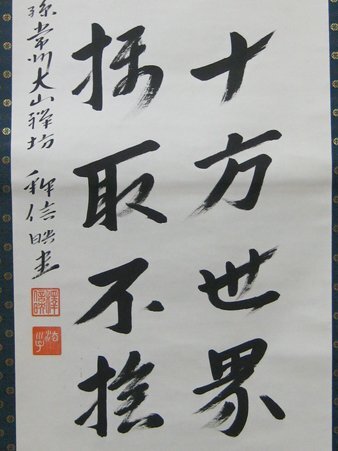 十方世界
摂取不捨
孫常州大山禅坊 釈信映書